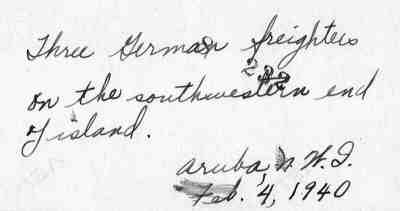 Three German freighters
on the southwestern end
of island.
Aruba, N.W.I.
Feb. 4, 1940